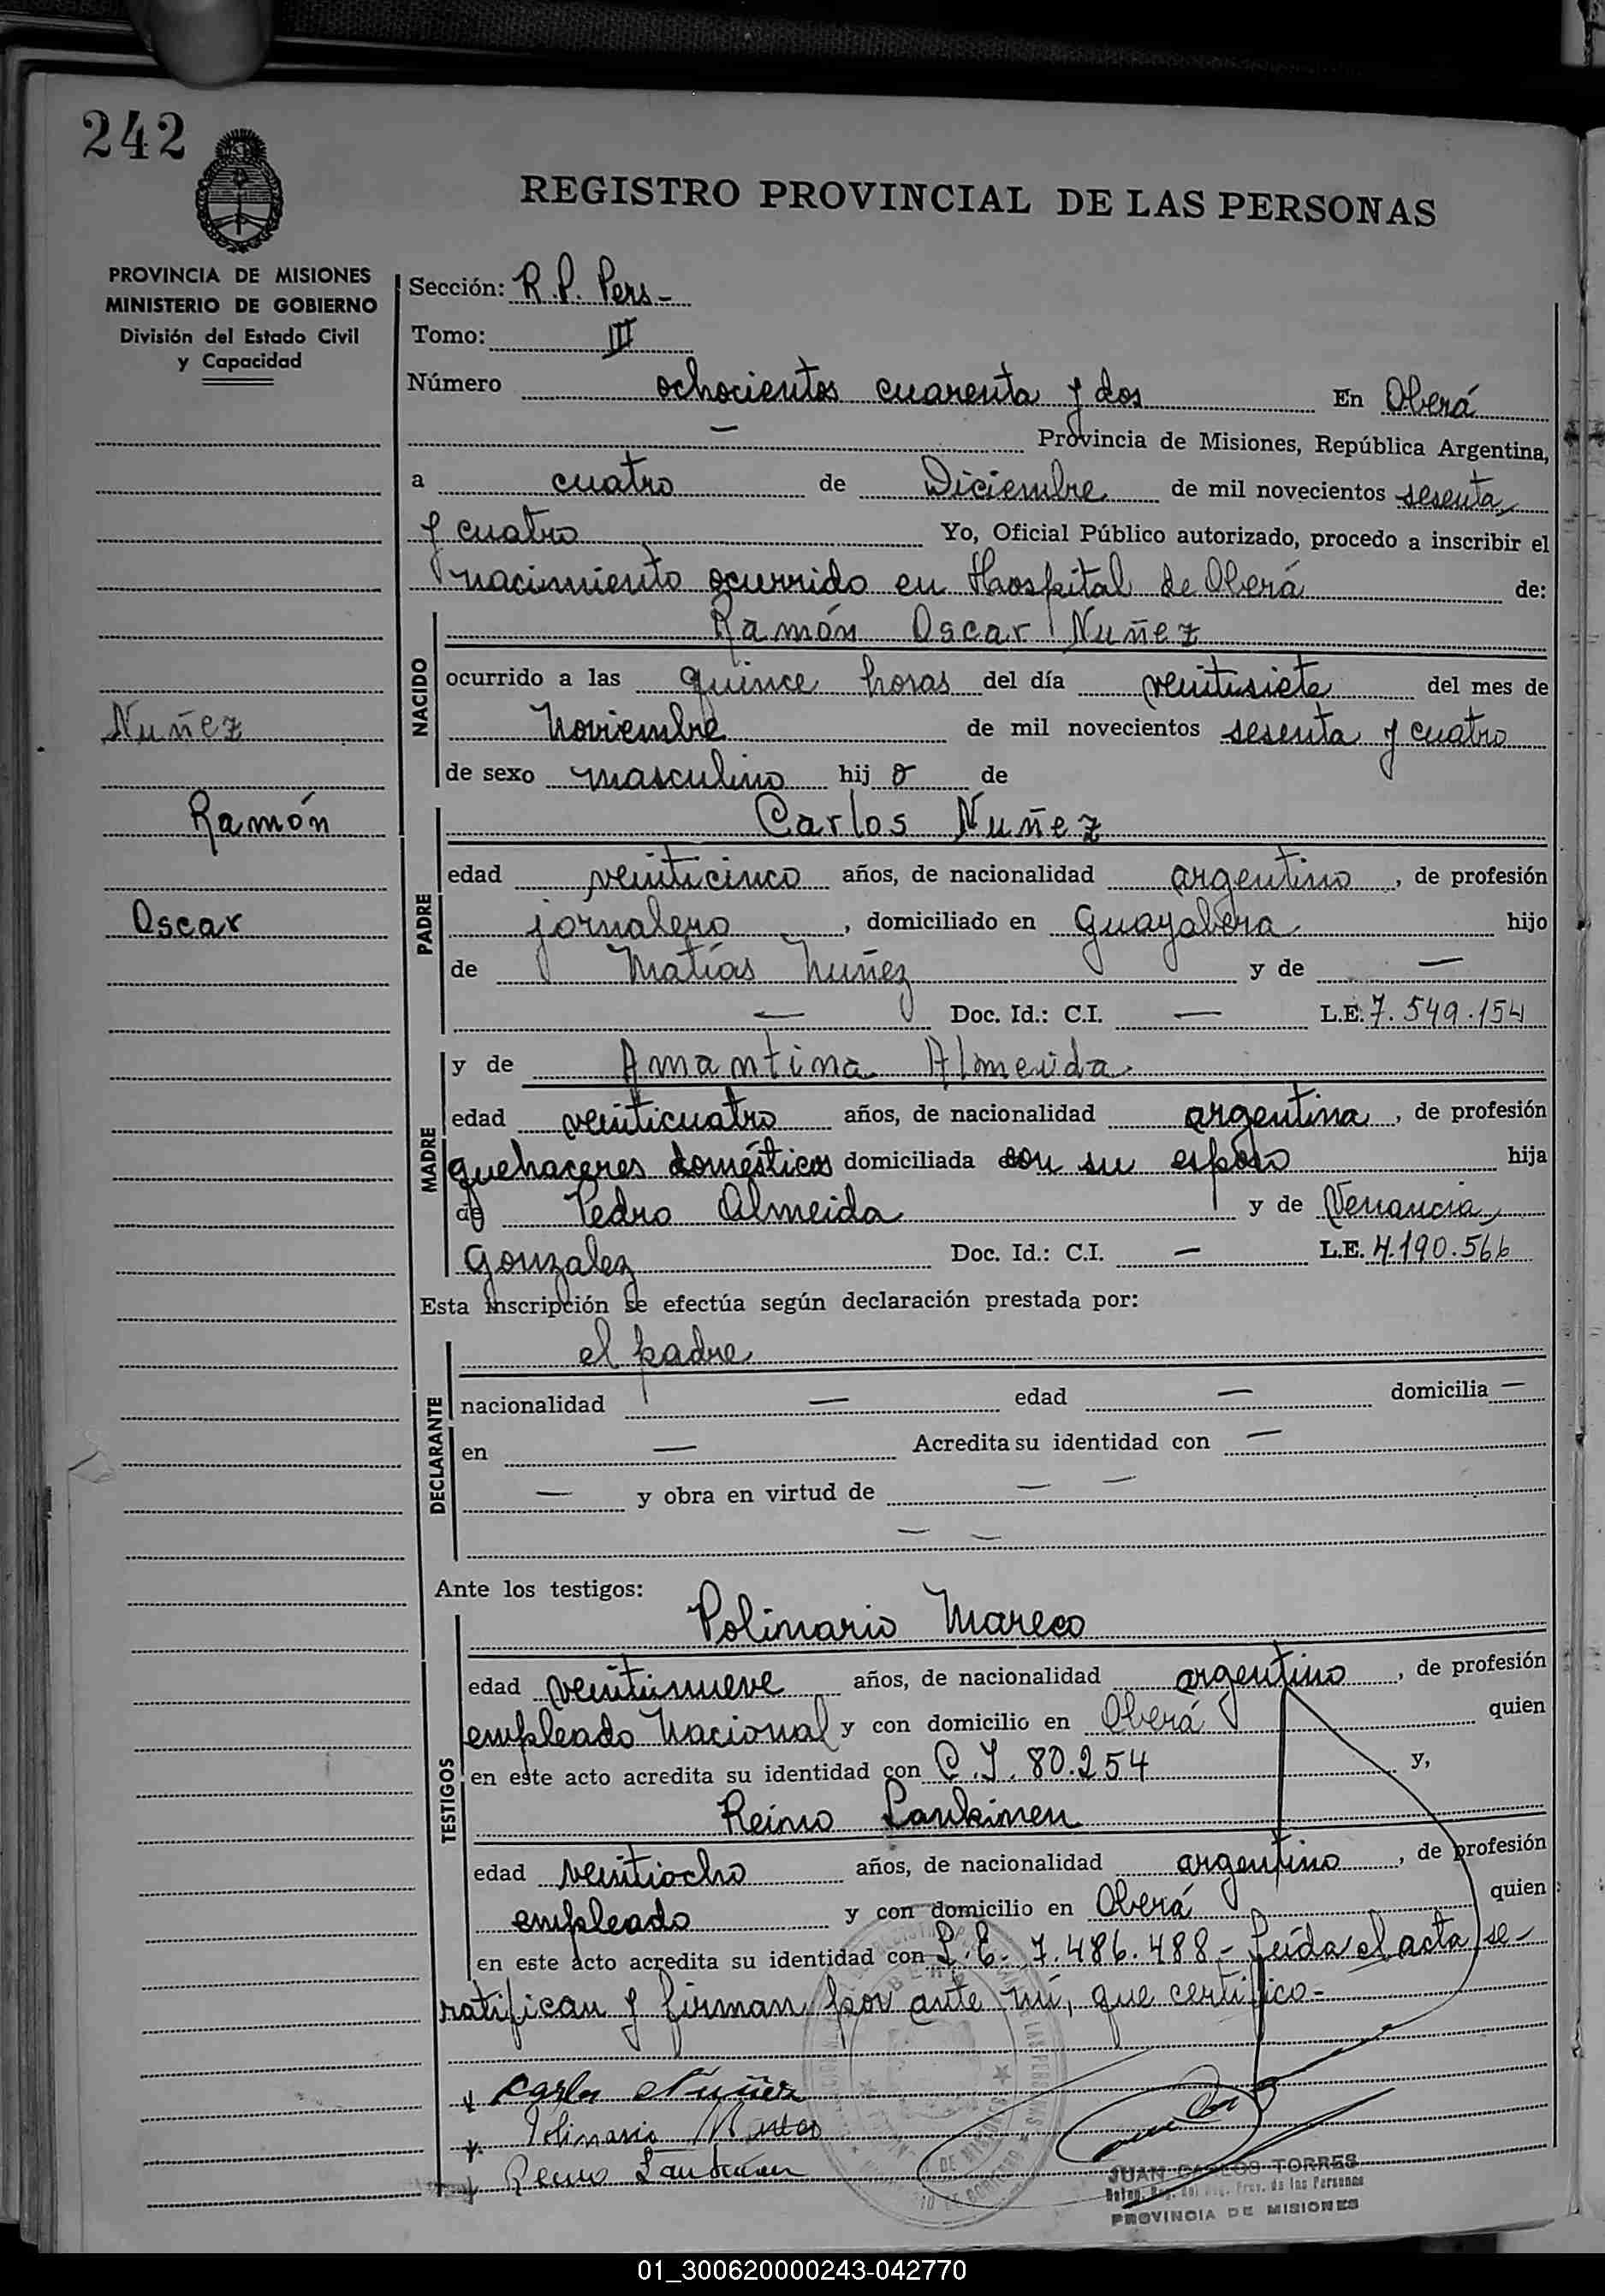 242
REGISTRO PROVINCIAL DE LAS PERSONAS
PROVINCIA DE MISIONES
MINISTERIO DE GOBIERNO
División del Estado Civil
y Capacidad
Nuñez
Ramón
Oscar
Sección: R.P. Pers -
Tomo: III
Número ochocientos cuarenta y dos En Oberá
— Provincia de Misiones, República Argentina,
a cuatro de Diciembre de mil novecientos sesenta
y cuatro Yo, Oficial Público autorizado, procedo a inscribir el
nacimiento ocurrido en Hospital de Oberá de:
NACIDO
Ramón Oscar Nuñez
ocurrido a las quince horas del día veintisiete del mes de
Noviembre de mil novecientos sesenta y cuatro
de sexo masculino hij o de
PADRE
Carlos Nuñez
edad veinticinco años, de nacionalidad argentino, de profesión
jornalero, domiciliado en Guayabera hijo
de Matías Nuñez y de —
— Doc. Id.: C.I. — L.E. 7.549.154
MADRE
y de Amantina Almeida
edad veinticuatro años, de nacionalidad argentina, de profesión
quehaceres domésticos domiciliada con su esposo hija
de Pedro Almeida y de Venancia
Gonzalez Doc. Id.: C.I. — L.E. 4.190.566
Esta inscripción se efectúa según declaración prestada por:
DECLARANTE
el padre
nacionalidad — edad — domicilia —
en — Acredita su identidad con —
— y obra en virtud de — —
— —
Ante los testigos:
TESTIGOS
Polinario Mareco
edad veintinueve años, de nacionalidad argentino, de profesión
empleado Nacional y con domicilio en Oberá quien
en este acto acredita su identidad con C.I. 80.254 y,
Reino Lankinen
edad veintiocho años, de nacionalidad argentino, de profesión
empleado y con domicilio en Oberá quien
en este acto acredita su identidad con L.E. 7.486.488 - Leída el acta se
ratifican y firman por ante mí, que certifico -
Carlos Nuñez
Polinario Mareco
Reino Lankinen
JUAN CARLOS TORRES
Prov. de las Personas
PROVINCIA DE MISIONES
01_300620000243-042770